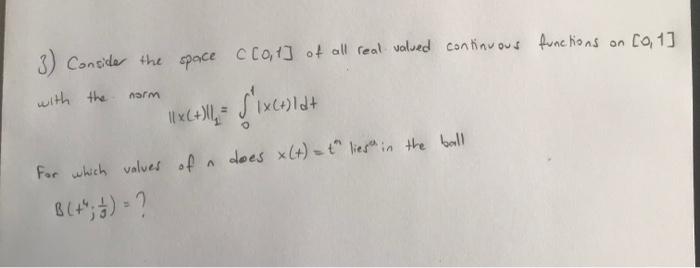 3) Consider the space C[0,1] of all real valued continuous functions on [0,1]
with the norm
||x(t)||₁ = ∫₀¹ |x(t)|dt
For which values of n does x(t) = tⁿ lies in the ball
B(t⁴; 1/3) = ?